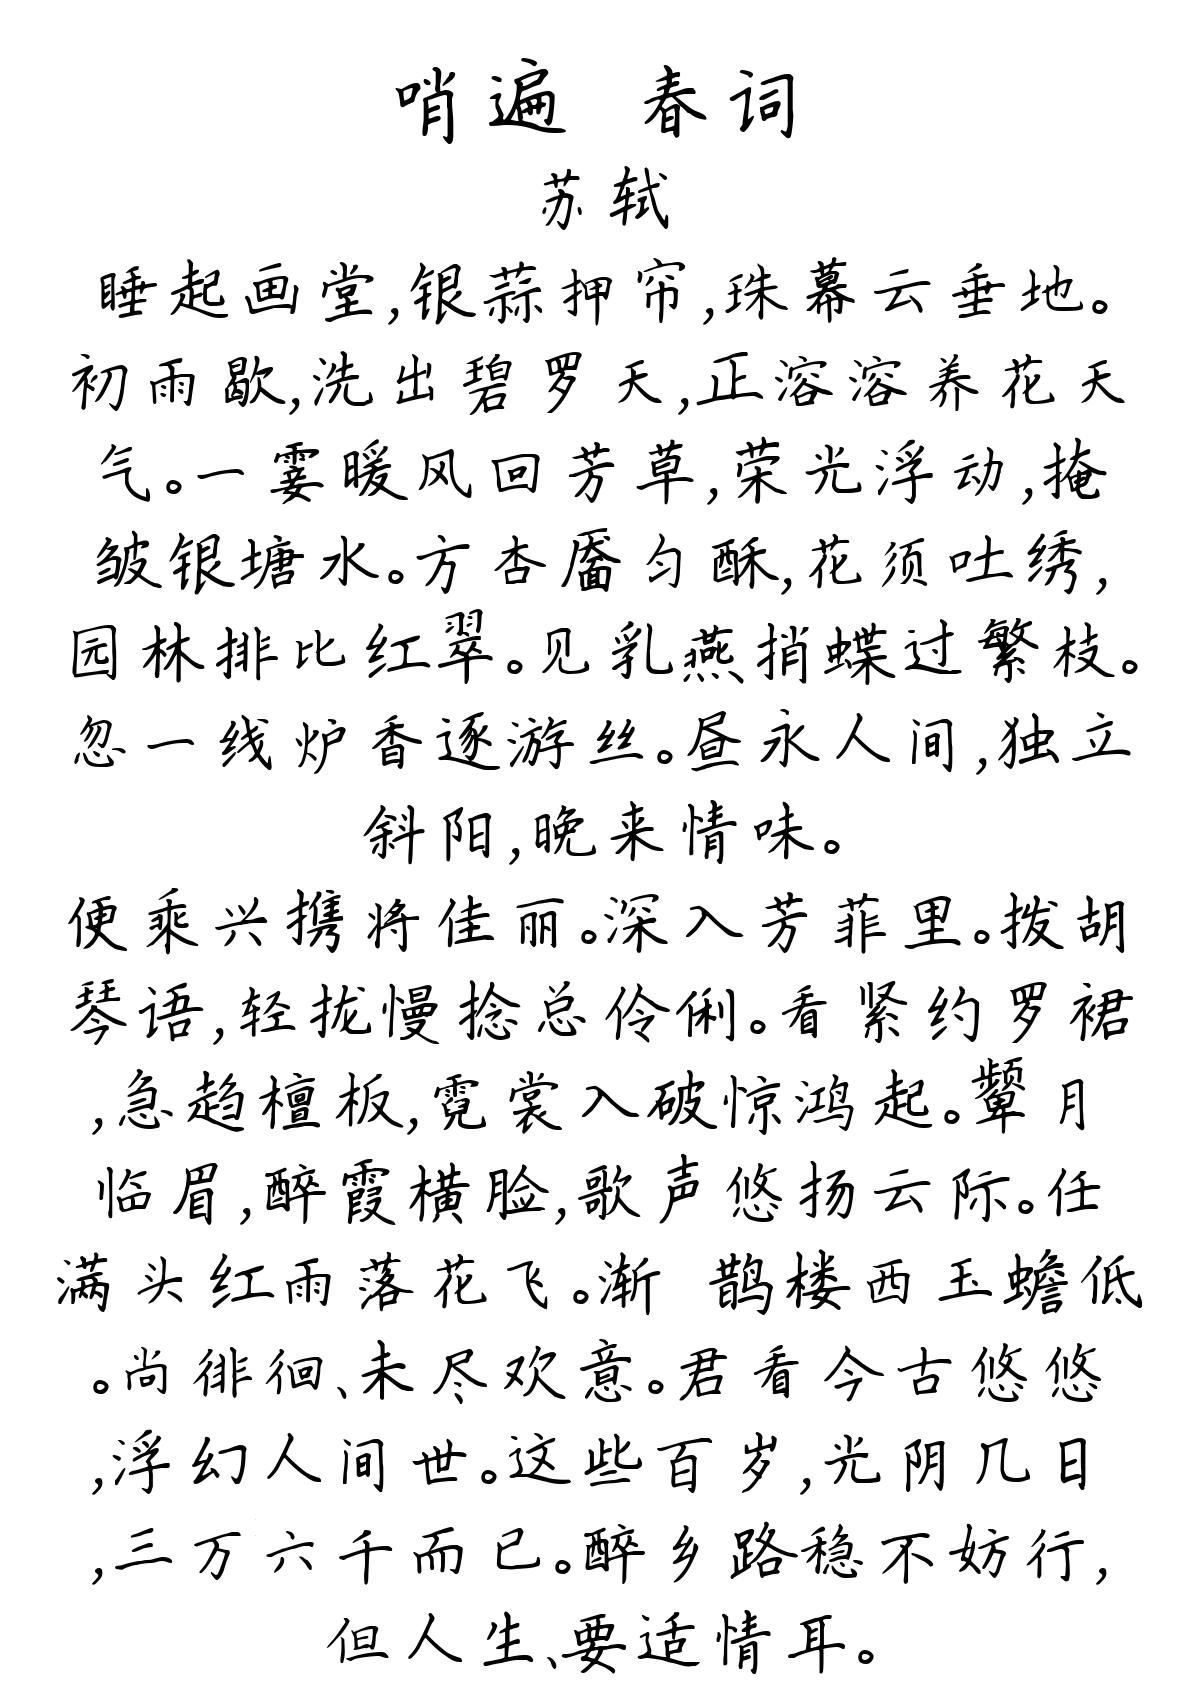 哨遍 春词
苏轼
睡起画堂,银蒜押帘,珠幕云垂地。
初雨歇,洗出碧罗天,正溶溶养花天
气。一霎暖风回芳草,荣光浮动,掩
皱银塘水。方杏靥匀酥,花须吐绣,
园林排比红翠。见乳燕捎蝶过繁枝。
忽一线炉香逐游丝。昼永人间,独立
斜阳,晚来情味。
便乘兴携将佳丽。深入芳菲里。拨胡
琴语,轻拢慢捻总伶俐。看紧约罗裙
,急趋檀板,霓裳入破惊鸿起。颦月
临眉,醉霞横脸,歌声悠扬云际。任
满头红雨落花飞。渐 鹊楼西玉蟾低
。尚徘徊、未尽欢意。君看今古悠悠
,浮幻人间世。这些百岁,光阴几日
,三万六千而已。醉乡路稳不妨行,
但人生、要适情耳。